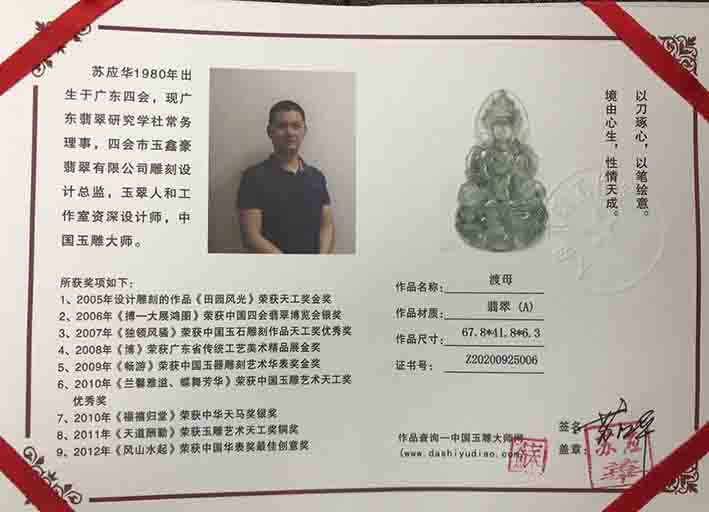 苏应华1980年出
生于广东四会，现广
东翡翠研究学社常务
理事，四会市玉鑫豪
翡翠有限公司雕刻设
计总监，玉翠人和工
作室资深设计师，中
国玉雕大师。
以刀琢心，以笔绘意。
境由心生，性情天成。
所获奖项如下：
1、2005年设计雕刻的作品《田园风光》荣获天工奖金奖
2、2006年《搏一大展鸿图》荣获中国四会翡翠博览会银奖
3、2007年《独领风骚》荣获中国玉石雕刻作品天工奖优秀奖
4、2008年《博》荣获广东省传统工艺美术精品展金奖
5、2009年《畅游》荣获中国玉器雕刻艺术华表奖金奖
6、2010年《兰馨雅溢、蝶舞芳华》荣获中国玉雕艺术天工奖
优秀奖
7、2010年《福禧归堂》荣获中华天马奖银奖
8、2011年《天道酬勤》荣获玉雕艺术天工奖铜奖
9、2012年《风山水起》荣获中国华表奖最佳创意奖
作品名称：渡母
作品材质：翡翠（A）
作品尺寸：67.8*41.8*6.3
证书号：Z20200925006
作品查询一中国玉雕大师网
(www.dashiyudiao.com)
蘇
签名：苏应华
盖章：苏应华